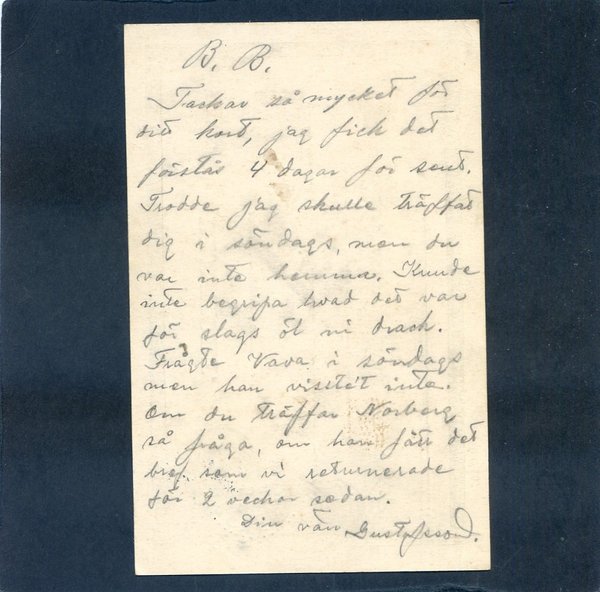 B. B.
Tackar så mycket för
ditt kort, jag fick det
förstås 4 dagar för sent.
Trodde jag skulle träffat
dig i söndags, men du
var inte hemma. Kunde
inte begripa hvad det var
för slags öl ni drack.
Frågte Vava i söndags
men han visste't inte.
Om du träffar Norberg
så fråga, om han fått det
bref som vi returnerade
för 2 veckor sedan.
Din vän Gustafsson.